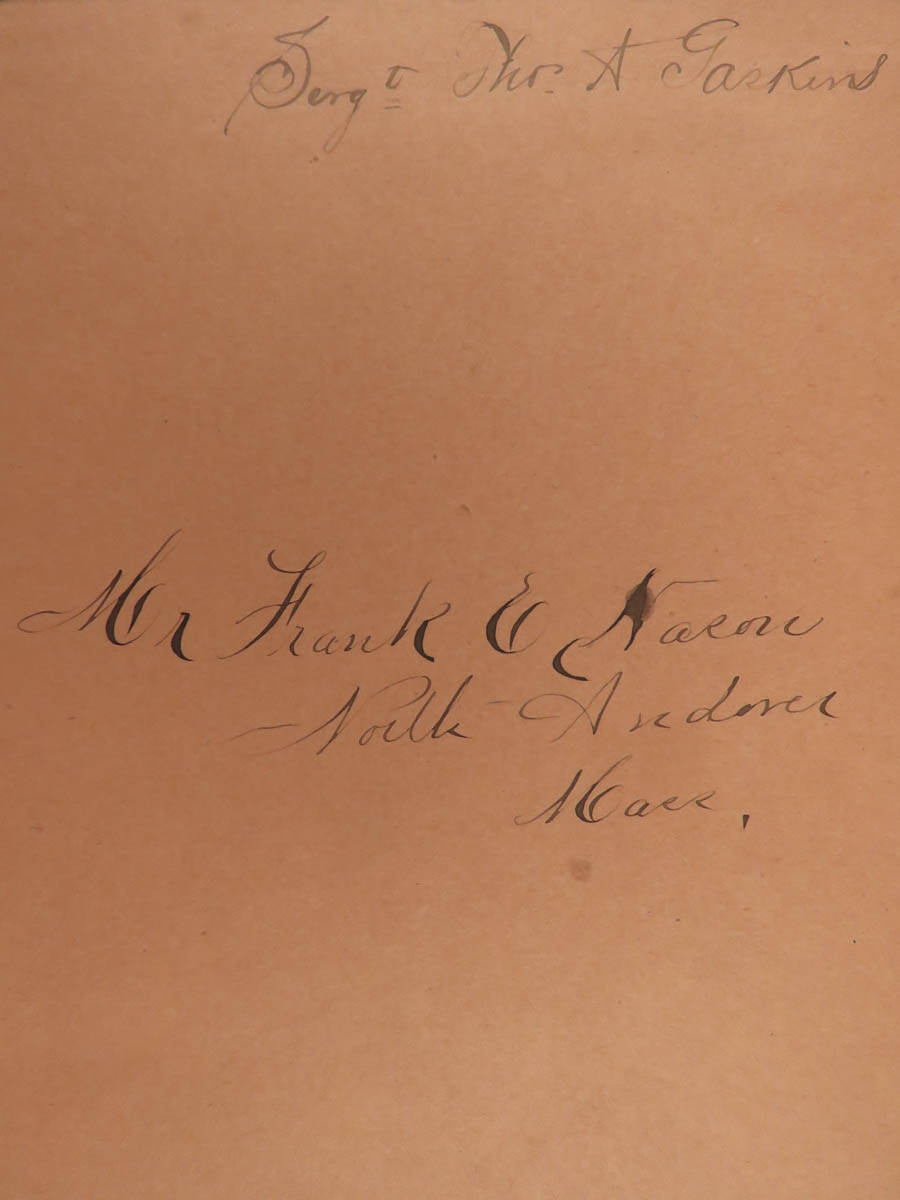 Sergt Thos A Gaskins
Mr Frank E Nason
North Andover
Mass.